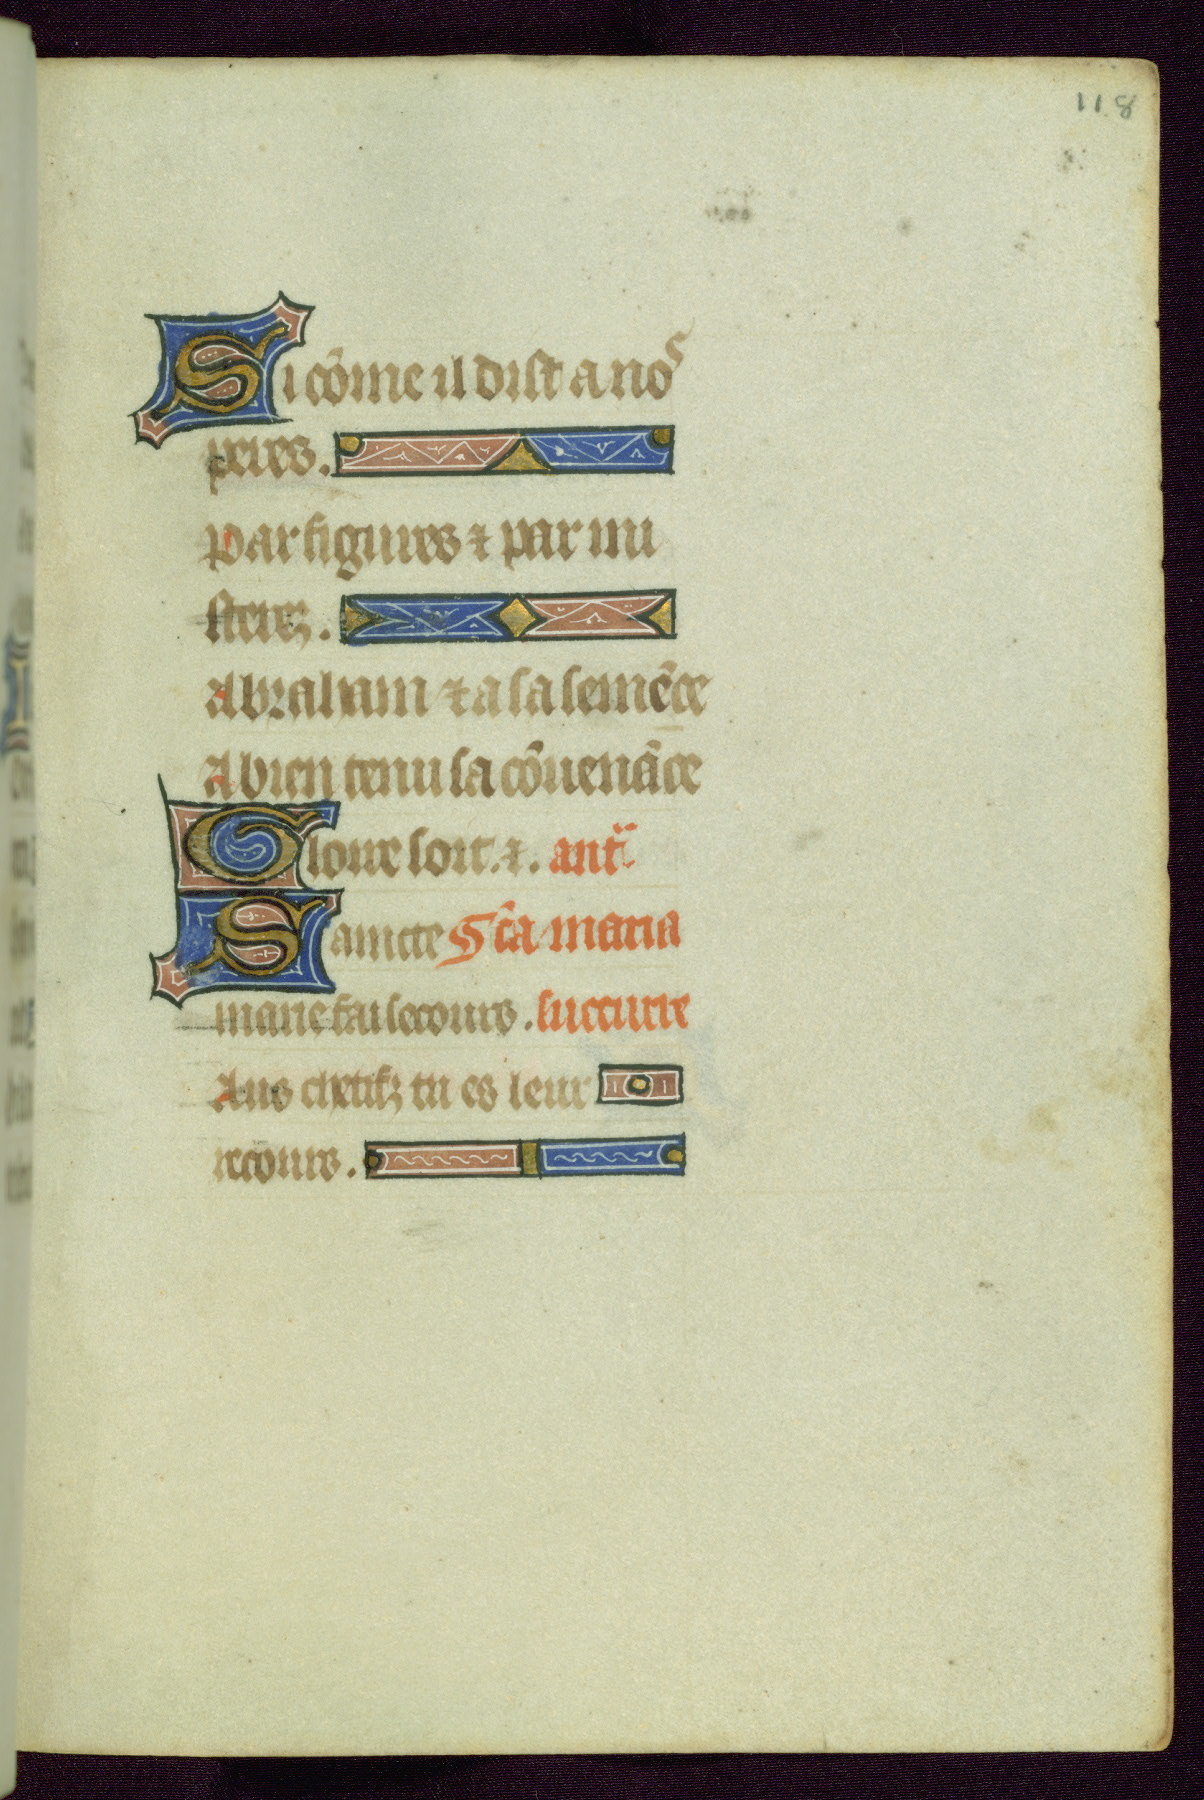 118
Si cõme il dist a noˢ
peres.
Par figures ⁊ par mi
sterez.
Abraham ⁊ a sa semẽce
A bien tenu sa cõuenãce
Gloire soit. ⁊. ant̃
Saincte Sc̃a maria
marie fai secours. succurre
Aus chetifz tu es leur
recours.